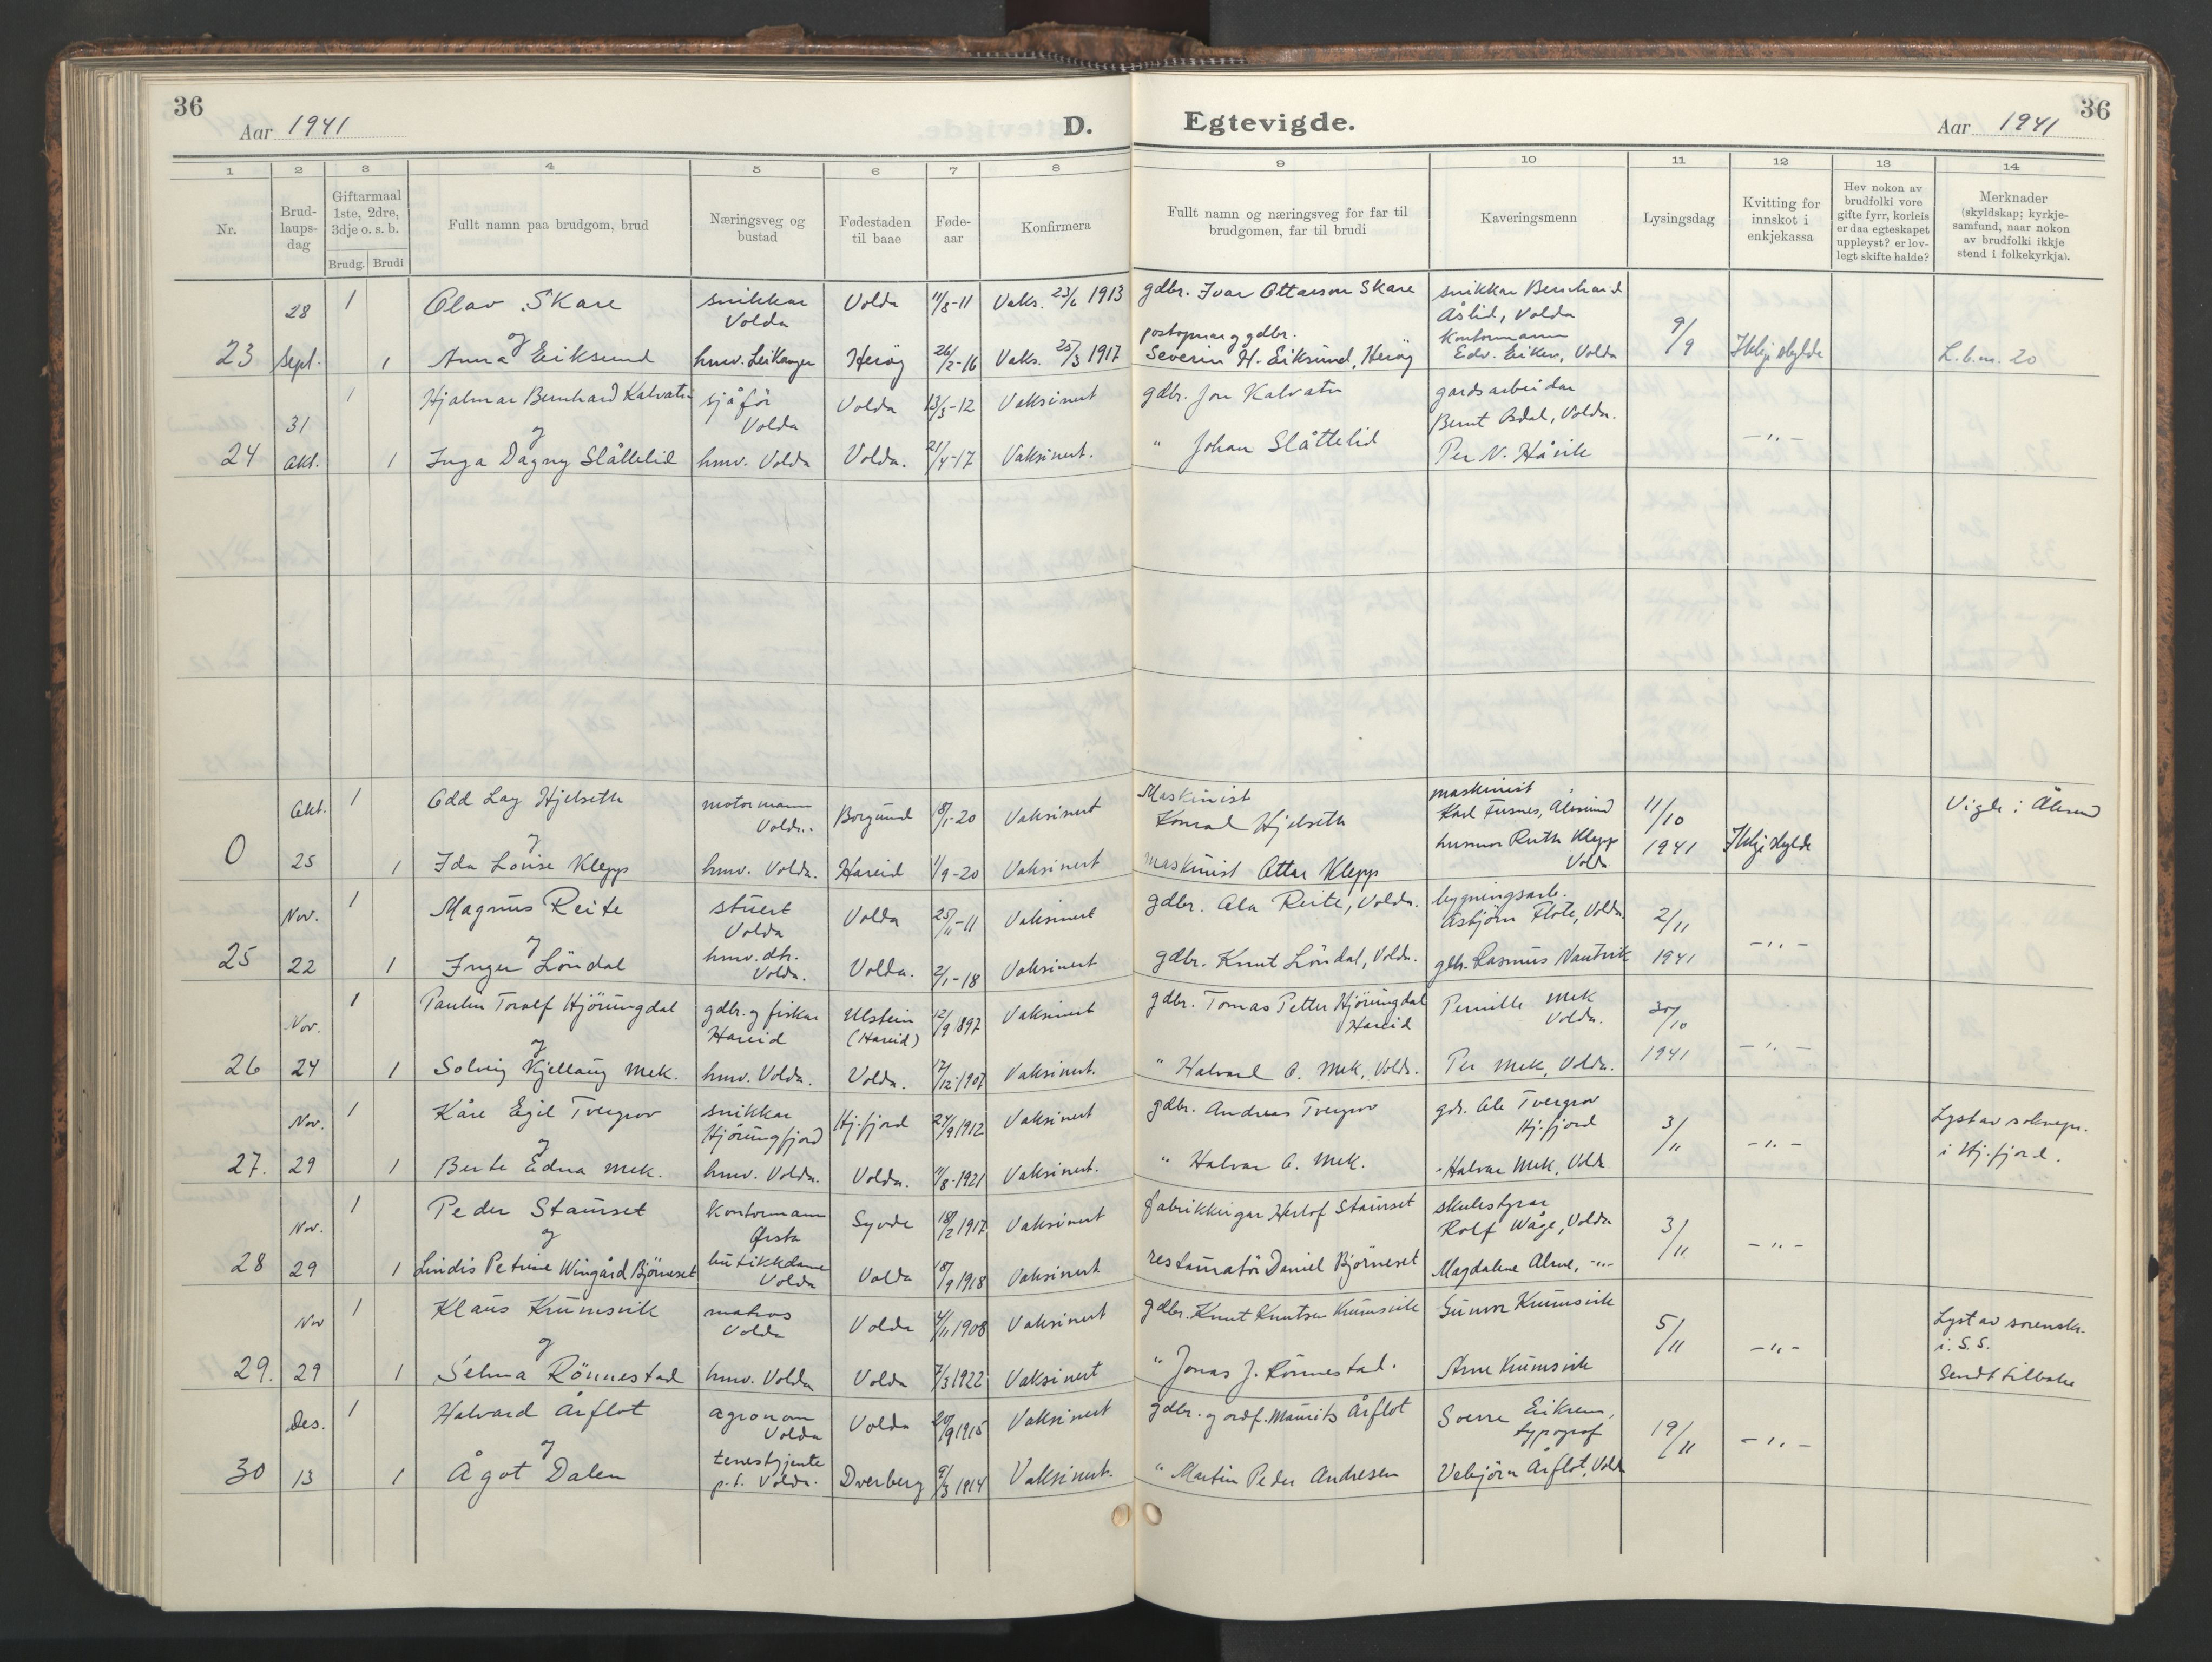 36
Aar 1941
D.
Egtevigde.
Aar 1941
36
1 2 3 4 5 6 7 8 9 10 11 12 13 14
Nr.
Brud-
laups-
dag
Giftarmaal
1ste, 2dre,
3dje o. s. b.
Brudg. Brudi
Fullt namn paa brudgom, brud
Næringsveg og
bustad
Fødestaden
til baae
Føde-
aar
Konfirmera
Fullt namn og næringsveg for far til
brudgomen, far til brudi
Kaveringsmenn
Lysingsdag
Kvitting for
innskot i
enkjekassa
Hev nokon av
brudfolki vore
gifte fyrr, korleis
er daa egteskapet
uppløyst? er lov-
legt skifte halde?
Merknader
(skyldskap; kyrkje-
samfund, naar nokon
av brudfolki ikkje
stend i folkekyrkja).
23
28
Sept.
1
Olav Skare
og
1 Anna Eiksund
snikkar
Volda
hmv. Leikanger
Volda
Herøy
11/8-11
26/2-16
Vaks. 23/6 1913
Vaks. 25/3 1917
gdbr. Ivar Ottarson Skare
postopnar og gdbr.
Severin H. Eiksund, Herøy
snikkar Bernhard
Åslid, Volda
Kontormann
Edv. Eiken, Volda
9/9
Ikkje skylde
L.b.nr. 20
24
31
Okt.
1
Hjalmar Bernhard Kalvatn
og
1 Inga Dagny Slåttelid
sjåfør
Volda
hmv. Volda
Volda
Volda.
13/3-12
21/4-17
Vaksinert
Vaksinert.
gdbr. Jon Kalvatn
" Johan Slåttelid
gardsarbeidar
Bernt Osdal, Volda.
Per N. Håvik
- " -
0
Okt.
25
1
Odd Lay Hjelseth
og
1 Ida Lovise Klepp
motormann
Volda.
hmv. Volda.
Borgund
Hareid
18/1-20
1/9-20
Vaksinert
Vaksinert
Maskinist
Konrad Hjelseth
maskinist Ottar Klepp
maskinist
Karl Fusnes, Ålesund
husmor Ruth Klepp
Volda
11/10
1941
Ikkje skylde
Vigde i Ålesund
25
Nov.
22
1
Magnus Reite
og
1 Inger Löndal
stuert
Volda
hmv. dtr.
Volda.
Volda
Volda.
25/11-11
2/1-18
Vaksinert
Vaksinert
gdbr. Ola Reite, Volda.
gdbr. Knut Löndal, Volda.
bygningsarb.
Asbjörn Flöte, Volda
gbr. Rasmus Nautvik
2/11
1941
- " -
26
Nov.
24
1
Paulin Toralf Hjörungdal
og
1 Solveig Kjellaug Mek.
gdbr. og fiskar
Hareid
hmv. Volda.
Ulstein
(Hareid)
Volda.
12/9 1897
17/12-1907
Vaksinert
Vaksinert.
gdbr. Tomas Petter Hjörungdal
Hareid
" Halvard O. Mek, Volda.
Pernille Mek
Volda.
Per Mek, Volda.
30/10
1941
- " -
27.
Nov.
29
1
Kåre Egil Tvergrov
og
1 Berte Edna Mek.
snikkar
Hjörungfjord
hmv. Volda.
Hj.fjord
Volda.
24/9 1912
11/8-1921
Vaksinert
Vaksinert.
gdbr. Andreas Tvergrov
" Halvar O. Mek.
gdr. Ole Tvergrov
Hj.fjord
" Halvar Mek, Volda
3/11
- " -
Lyst av soknepr.
i Hj.fjord.
28
Nov.
29
1
Peder Staurset
og
1 Lindis Petrine Wingård Björneset
Kontormann
Ørsta
butikkdame
Volda
Syvde
Volda
18/2 1917
18/9 1918
Vaksinert
Vaksinert
fabrikkeigar Herlof Staurset
restauratör Daniel Björneset
skulestyrar
Rolf Våge, Volda
Magdalene Alme, - " -
3/11
- " -
29.
Nov
29
1
Klaus Krumsvik
og
1 Selma Rönnestad
matros
Volda
hmv. Volda
Volda
Volda
4/11 1908
7/3 1922
Vaksinert
Vaksinert
gdbr. Knut Knutsen Krumsvik
" Jonas J. Rönnestad.
Gunvor Krumsvik
Arne Krumsvik
5/11
- " -
Lyst av sorenskr.
i. S. S.
Sendt tilbake
30
Des.
13
1
Halvard Årflot
og
1 Ågot Dalen
agronom
Volda
tenestgjente
p.t. Volda.
Volda
Dverberg
20/9 1915
9/3 1914
Vaksinert
Vaksinert.
gdbr. og ordf. Maurits Årflot
" Martin Peder Andresen
Sverre Eiksen,
typograf
Vebjörn Årflot, Volda
19/11
- " -